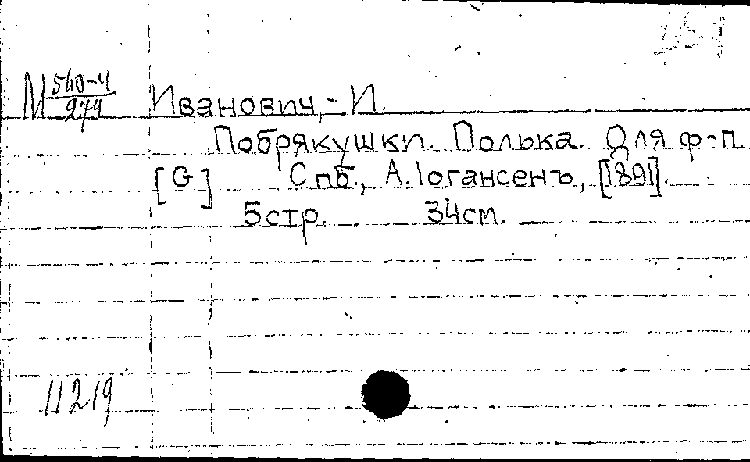 М 560-4/979 Иванович,- И.
Побрякушки. Полька. Для ф-п.
[G] Спб., А. Iогансенъ, [1891].
5стр. 34см.
11219